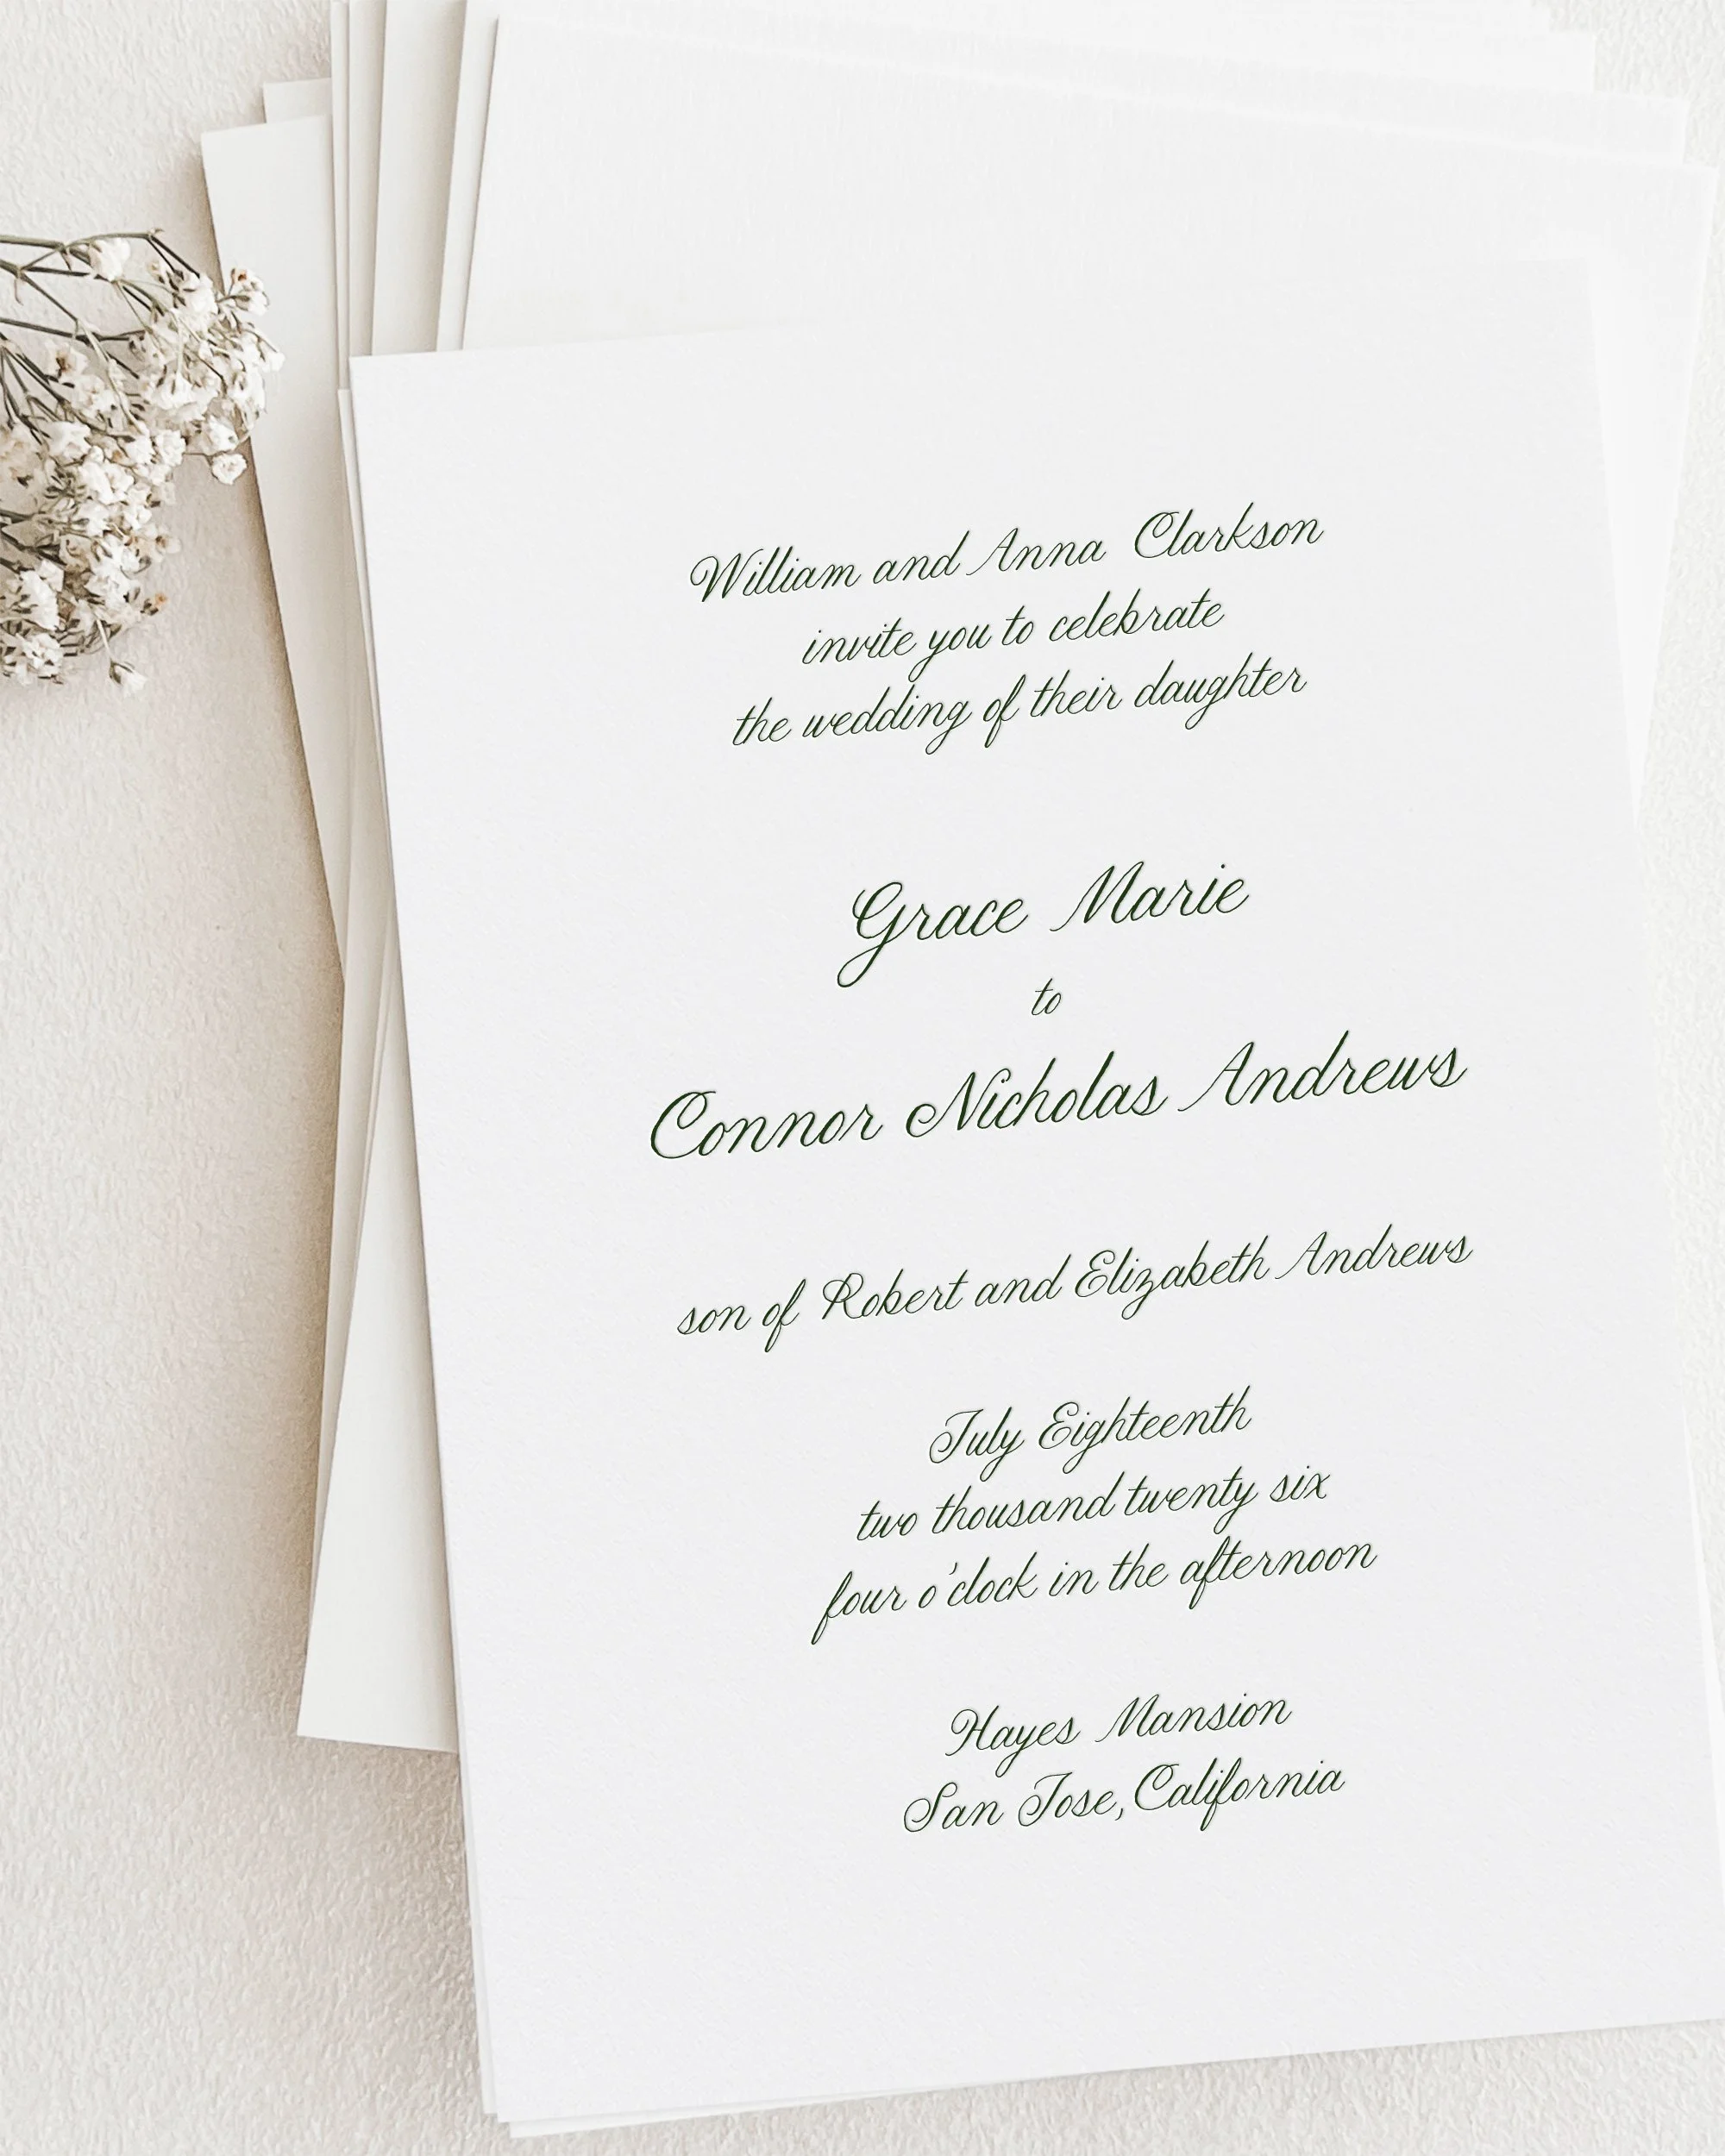 William and Anna Clarkson
invite you to celebrate
the wedding of their daughter
Grace Marie
to
Connor Nicholas Andrews
son of Robert and Elizabeth Andrews
July Eighteenth
two thousand twenty six
four o'clock in the afternoon
Hayes Mansion
San Jose, California